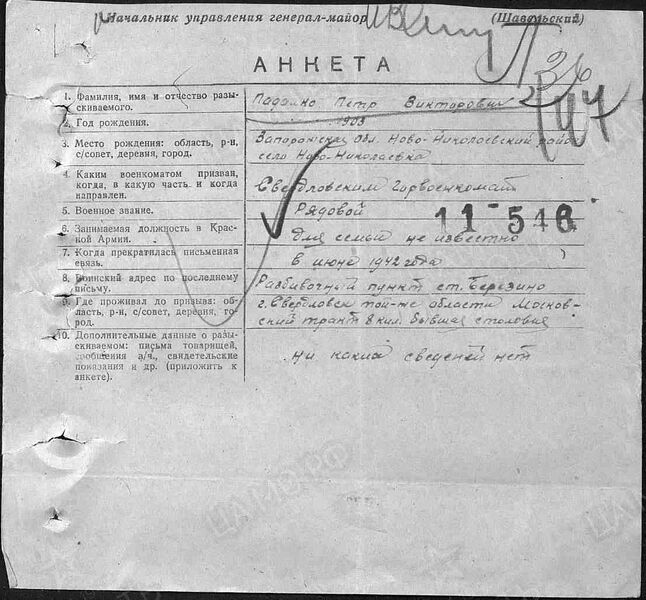 Начальник управления генерал-майор (Шавельский)
36
107
АНКЕТА
1. Фамилия, имя и отчество разы-
скиваемого.
Падалко Петр Викторович
2. Год рождения.
1903
3. Место рождения: область, р-н,
с/совет, деревня, город.
Запорожская обл. Ново-Николаевский район
село Ново-Николаевка
4. Каким военкоматом призван,
когда, в какую часть и когда
направлен.
Свердловским Горвоенкомат
5. Военное звание.
Рядовой
11-546
6. Занимаемая должность в Крас-
ной Армии.
для семьи не известно
7. Когда прекратилась письменная
связь.
в июне 1942 года
8. Воинский адрес по последнему
письму.
Разбивочный пункт ст. Березино
9. Где проживал до призыва: об-
ласть, р-н, с/совет, деревня, го-
род.
г. Свердловск той-же области Москов-
ский тракт 8 кил. бывшая столовая
10. Дополнительные данные о разы-
скиваемом: письма товарищей,
сообщения в/ч., свидетельские
показания и др. (приложить к
анкете).
ни каких сведений нет
ЦАМО.РФ
ЦАМО.РФ